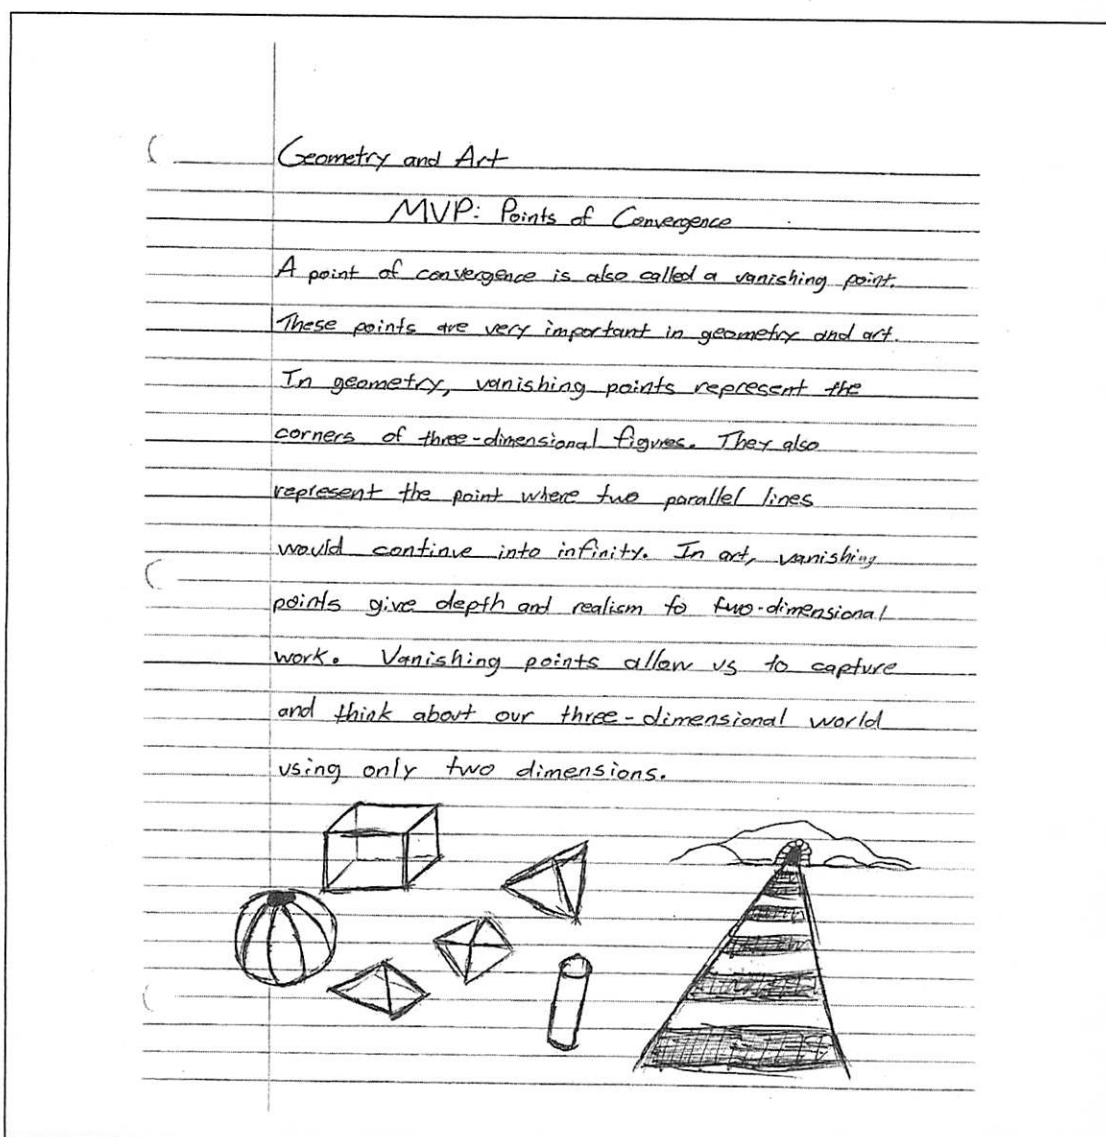 Geometry and Art
MVP: Points of Convergence
A point of convergence is also called a vanishing point.
These points are very important in geometry and art.
In geometry, vanishing points represent the
corners of three-dimensional figures. They also
represent the point where two parallel lines
would continue into infinity. In art, vanishing
points give depth and realism to two-dimensional
work. Vanishing points allow us to capture
and think about our three-dimensional world
using only two dimensions.